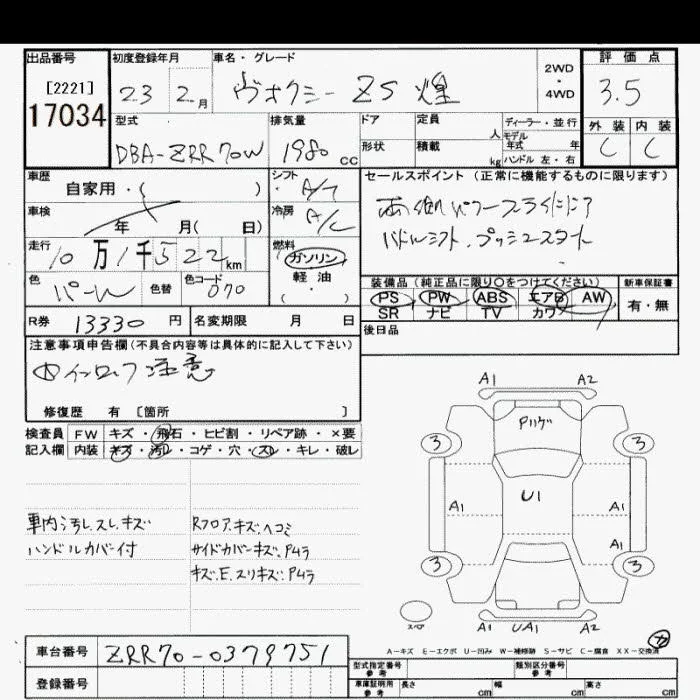 出品番号
[2221]
17034
初度登録年月
23 2月
車名・グレード
ヴォクシー ZS 煌
2WD
・
4WD
評価点
3.5
外装 内装
C C
型式
DBA-ZRR70W
排気量
1980 cc
ドア
形状
定員 人
積載 kg
ディーラー・並行
モデル
年式 年
ハンドル 左・右
車歴
自家用・( )
車検
年 月( 日)
走行
10万1千522km
色
パール
色替
色コード
070
シフト
A/T
冷房
A/C
燃料
ガソリン
軽・油
( ・ )
セールスポイント(正常に機能するものに限ります)
両側パワースライドドア
パドルシフト、プッシュスタート
装備品(純正品に限り○をつけてください)
PS PW ABS エアB AW
SR ナビ TV カワ
新車保証書
有・無
後日品
R券 13330 円
名変期限 月 日
注意事項申告欄(不具合内容等は具体的に記入して下さい)
修復歴 有 [箇所 ]
検査員 FW キズ・飛石・ヒビ割・リペア跡・×要
記入欄 内装 キズ・汚レ・コゲ・穴・スレ・キレ・破レ
車内汚レ、スレ、キズ
ハンドルカバー付
Rフロア、キズ、ヘコミ
サイドカバーキズ、P4ラ
キズ、E、スリキズ、P4ラ
A1 A2
3 3
U1
A1 A1
A1
3 3
A1 UA1 A2
スペア
A-キズ E-エクボ U-凹み W-補修跡 S-サビ C-腐食 XX-交換済
車台番号 ZRR70-0379751
登録番号
型式指定番号
参考
類別区分番号
参考
車庫証明用
参考
長さ cm
幅 cm
高さ cm